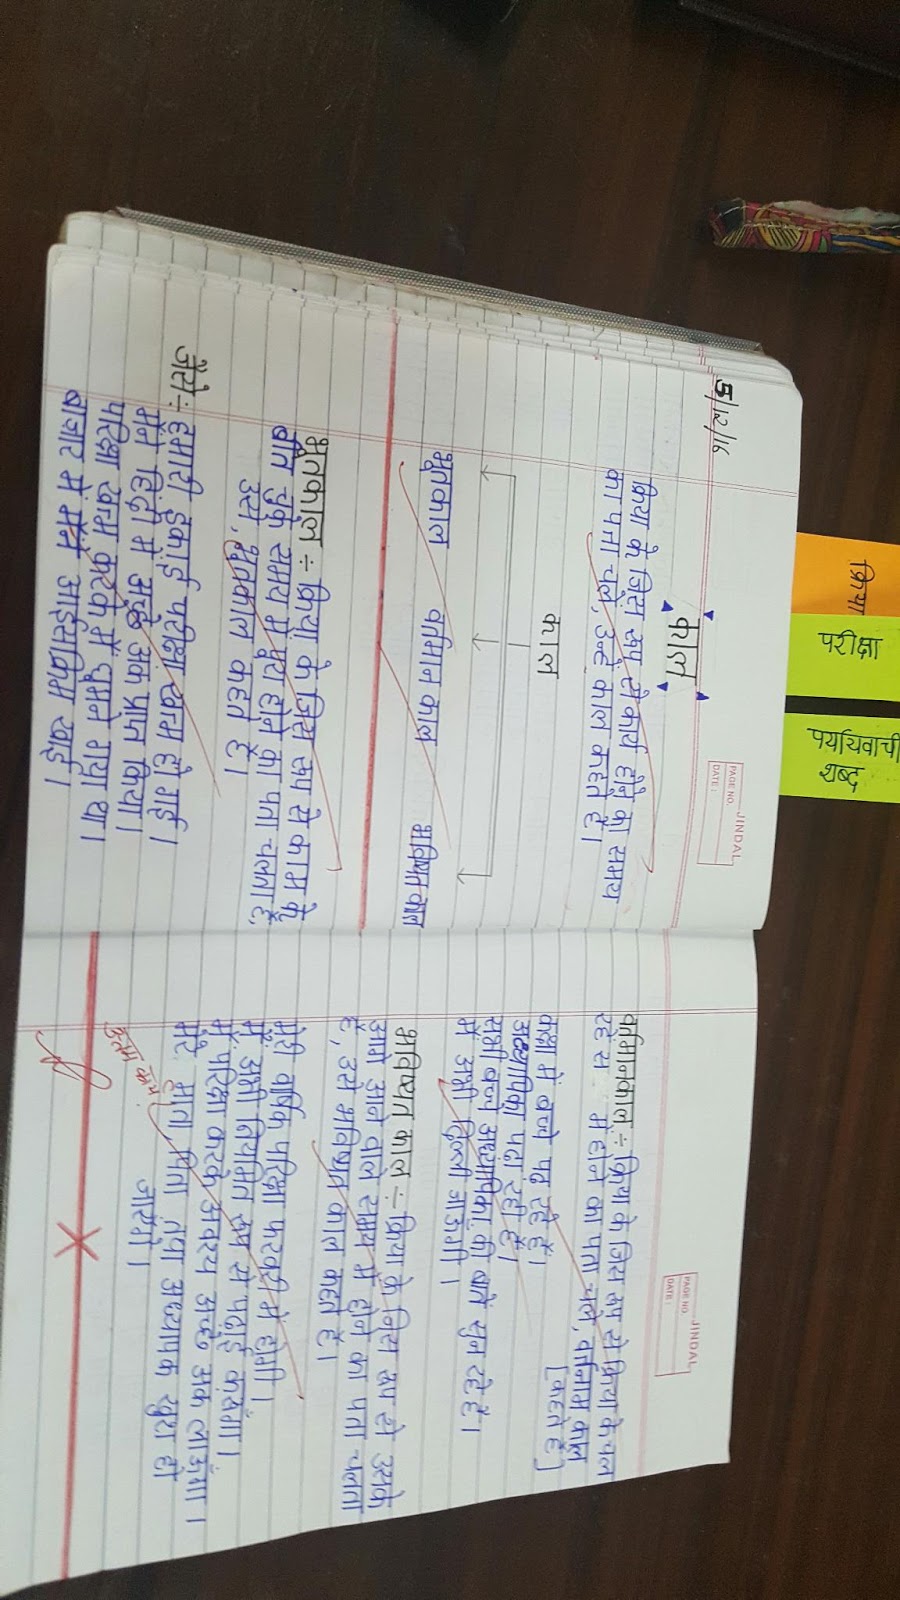 क्रिया
परीक्षा
पर्यायवाची
शब्द
JINDAL
PAGE NO.
DATE :
5/12/16
काल
क्रिया के जिस रूप से कार्य होने का समय
का पता चले, उन्हें काल कहते हैं।
काल
भूतकाल वर्तमान काल भविष्यत काल
भूतकाल ÷ क्रिया के जिस रूप से काम के
बीत चुके समय में पुरा होने का पता चलता है,
उसे, भूतकाल कहते हैं।
जैसे ÷ हमारी इकाई परिक्षा खत्म हो गई।
मैंने हिंदी में अच्छे अंक प्राप्त किया।
परिक्षा खत्म करके मैं घुमने गया था।
बाजार में मैंने आईसक्रिम खाई।
JINDAL
PAGE NO.
DATE :
वर्तमानकाल ÷ क्रिया के जिस रूप से क्रिया के चल
रहे स में होने का पता चले, वर्तमाम काल
[कहते हैं]
कक्षा में बच्चे पढ़ रहे हैं।
अध्यापिका पढ़ा रही हैं।
सभी बच्चे अध्यापिका की बातें सुन रहे हैं।
में अभी दिल्ली जाऊंगी।
भविष्यत काल ÷ क्रिया के जिस रूप से उसके
आगे आने वाले समय में होने का पता चलता
है, उसे भविष्यत काल कहते हैं।
मेरी वार्षिक परिक्षा फरवरी में होगी।
मैं अभी नियमित रूप से पढ़ाई करूंगा।
मैं परिक्षा करके अवश्य अच्छे अंक लाऊंगा।
मेरे माता, पिता तथा अध्यापक खुश हो
जाएंगे।
उत्तम काम